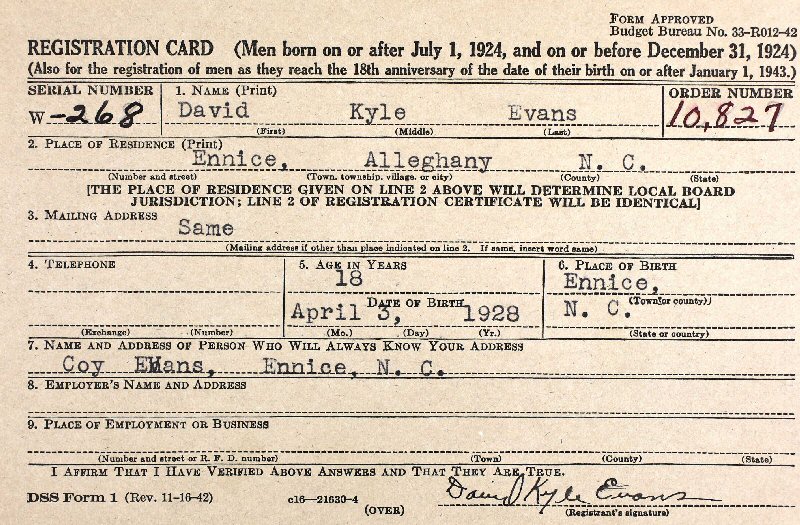 FORM APPROVED
Budget Bureau No. 33-R012-42
REGISTRATION CARD (Men born on or after July 1, 1924, and on or before December 31, 1924)
(Also for the registration of men as they reach the 18th anniversary of the date of their birth on or after January 1, 1943.)
SERIAL NUMBER 1. NAME (Print) ORDER NUMBER
W-268 David Kyle Evans 10,827
(First) (Middle) (Last)
2. PLACE OF RESIDENCE (Print)
Ennice, Alleghany N. C.
(Number and street) (Town, township, village, or city) (County) (State)
[THE PLACE OF RESIDENCE GIVEN ON LINE 2 ABOVE WILL DETERMINE LOCAL BOARD
JURISDICTION; LINE 2 OF REGISTRATION CERTIFICATE WILL BE IDENTICAL]
3. MAILING ADDRESS
Same
(Mailing address if other than place indicated on line 2. If same, insert word same)
4. TELEPHONE 5. AGE IN YEARS 6. PLACE OF BIRTH
18 Ennice,
DATE OF BIRTH (Town or county)
April 3, 1928 N. C.
(Exchange) (Number) (Mo.) (Day) (Yr.) (State or country)
7. NAME AND ADDRESS OF PERSON WHO WILL ALWAYS KNOW YOUR ADDRESS
Coy Evans, Ennice, N. C.
8. EMPLOYER'S NAME AND ADDRESS
9. PLACE OF EMPLOYMENT OR BUSINESS
(Number and street or R. F. D. number) (Town) (County) (State)
I AFFIRM THAT I HAVE VERIFIED ABOVE ANSWERS AND THAT THEY ARE TRUE.
DSS Form 1 (Rev. 11-16-42) c16—21630-4 David Kyle Evans
(OVER) (Registrant's signature)